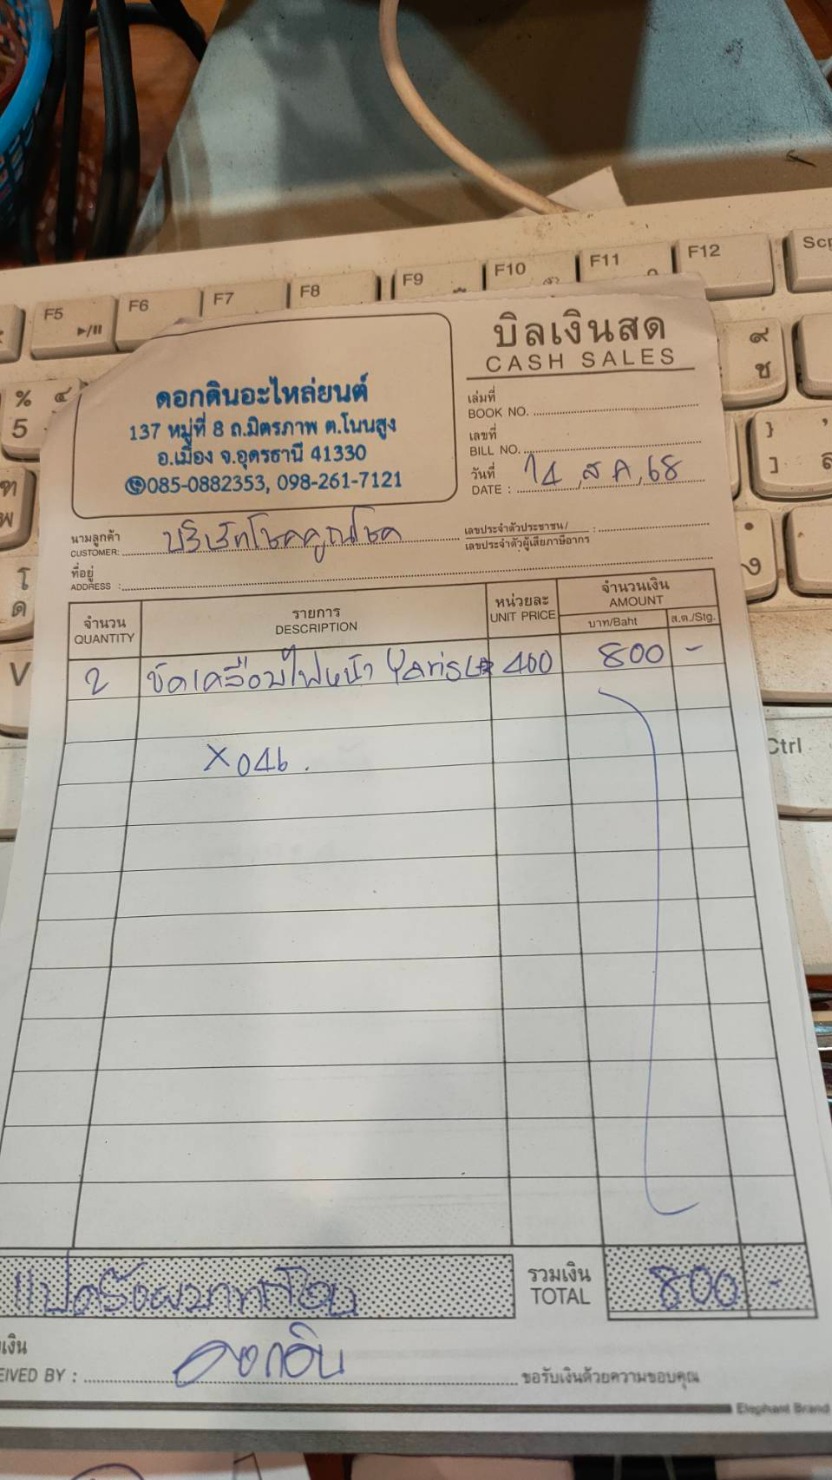 F5 F6 F7 F8 F9 F10 F11 F12 Scr
% ๔
5
๙
ช
}
]
V
Ctrl
ดอกดินอะไหล่ยนต์
137 หมู่ที่ 8 ถ.มิตรภาพ ต.โนนสูง
อ.เมือง จ.อุดรธานี 41330
085-0882353, 098-261-7121
บิลเงินสด
CASH SALES
เล่มที่
BOOK NO.
เลขที่
BILL NO.
วันที่
DATE : 14 ,ส.ค, 68
นามลูกค้า
CUSTOMER: บริษัทโชคคูณโชค
เลขประจำตัวประชาชน/
เลขประจำตัวผู้เสียภาษีอากร :
ที่อยู่
ADDRESS :
จำนวน
QUANTITY
รายการ
DESCRIPTION
หน่วยละ
UNIT PRICE
จำนวนเงิน
AMOUNT
บาท/Baht ส.ต./Stg.
2 ขัดเคลือบไฟหน้า Yaris 400 800 -
X046.
แปดร้อยบาทถ้วน
รวมเงิน
TOTAL 800 -
EIVED BY : ดอกดิน
ขอรับเงินด้วยความขอบคุณ
Elephant Brand